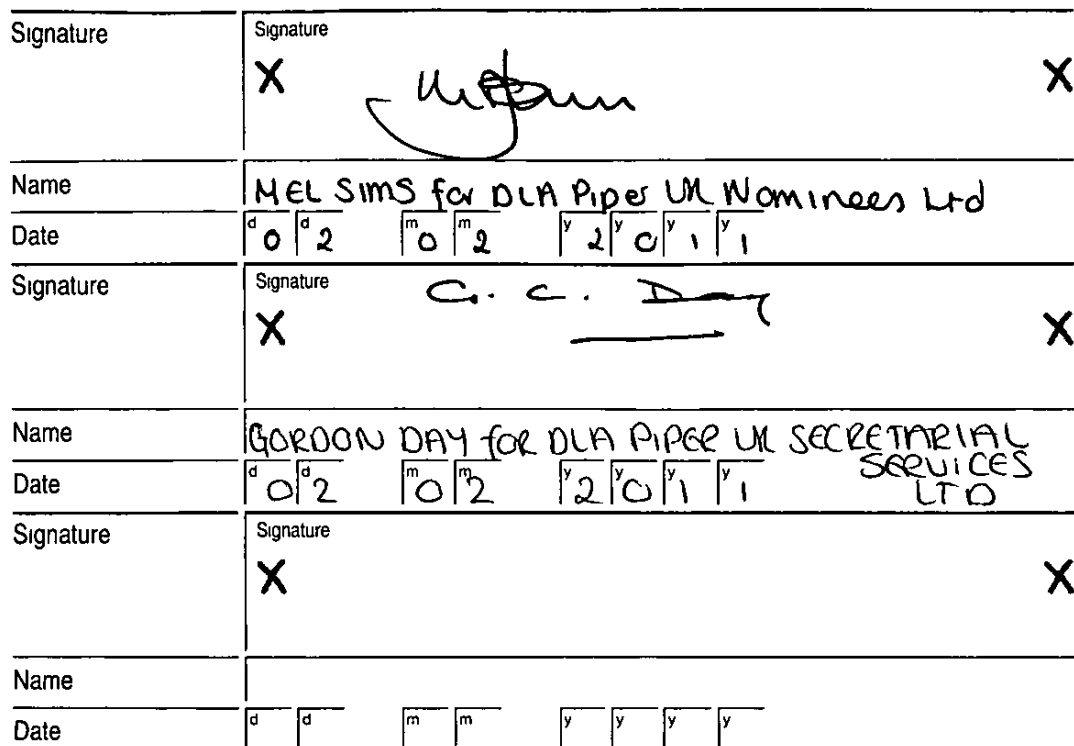 Signature
Signature
X X
Name MEL SIMS for DLA Piper UK Nominees Ltd
Date d0 d2 m0 m2 y2 y0 y1 y1
Signature
Signature G. C. Day
X X
Name GORDON DAY for DLA PIPER UK SECRETARIAL
SERVICES
Date d0 d2 m0 m2 y2 y0 y1 y1 LTD
Signature
Signature
X X
Name
Date d d m m y y y y